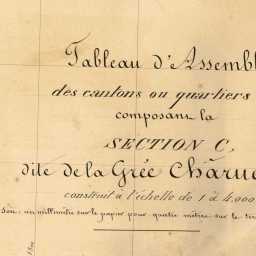 Tableau d'Assembl
des cantons ou quartiers
composans la
SECTION C,
dite de la Grée Charu
construit à l'échelle de 1 à 4.000
Soit un millimètre sur le papier pour quatre mètres sur le ter